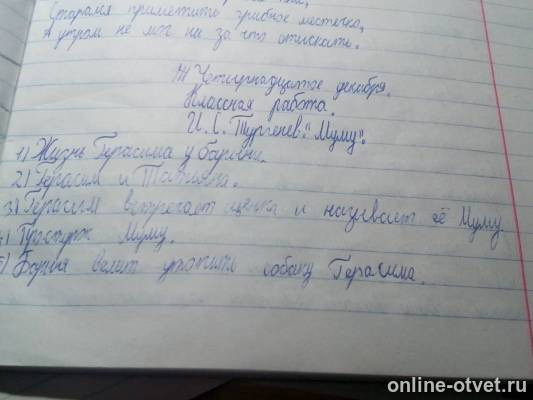 Старался приметить грибное местечко,
А утром не мог ни за что отыскать.
Четырнадцатое декабря.
Классная работа.
И. С. Тургенев. "Муму".
1) Жизнь Герасима у барыни.
2) Герасим и Татьяна.
3) Герасим встречает щенка и называет её Муму.
4) Проступок Муму.
5) Барыня велит утопить собаку Герасима.
online-otvet.ru